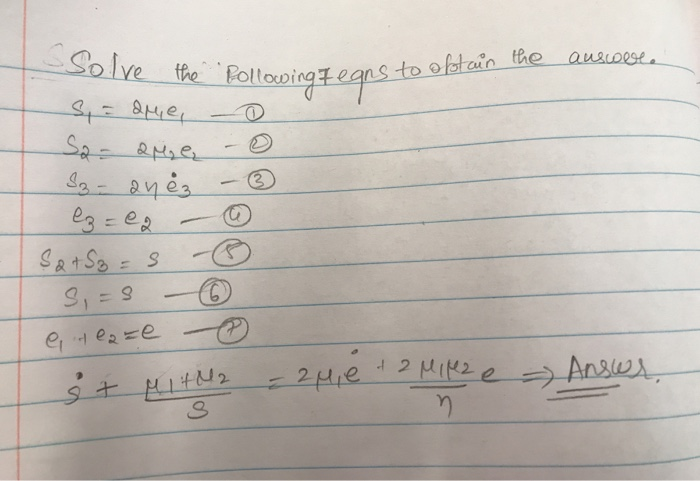 Solve the following 7 eqns to obtain the answer.
S₁ = 2μ₁e₁ — ①
S₂ = 2μ₂e₂ - ②
S₃ = 2η ė₃ - ③
e₃ = e₂ — ④
S₂ + S₃ = S - ⑤
S₁ = S — ⑥
e₁ + e₂ = e — ⑦
ṡ + (μ₁+μ₂)/S = 2μ₁ė + (2μ₁μ₂)/η e ⇒ Answer.